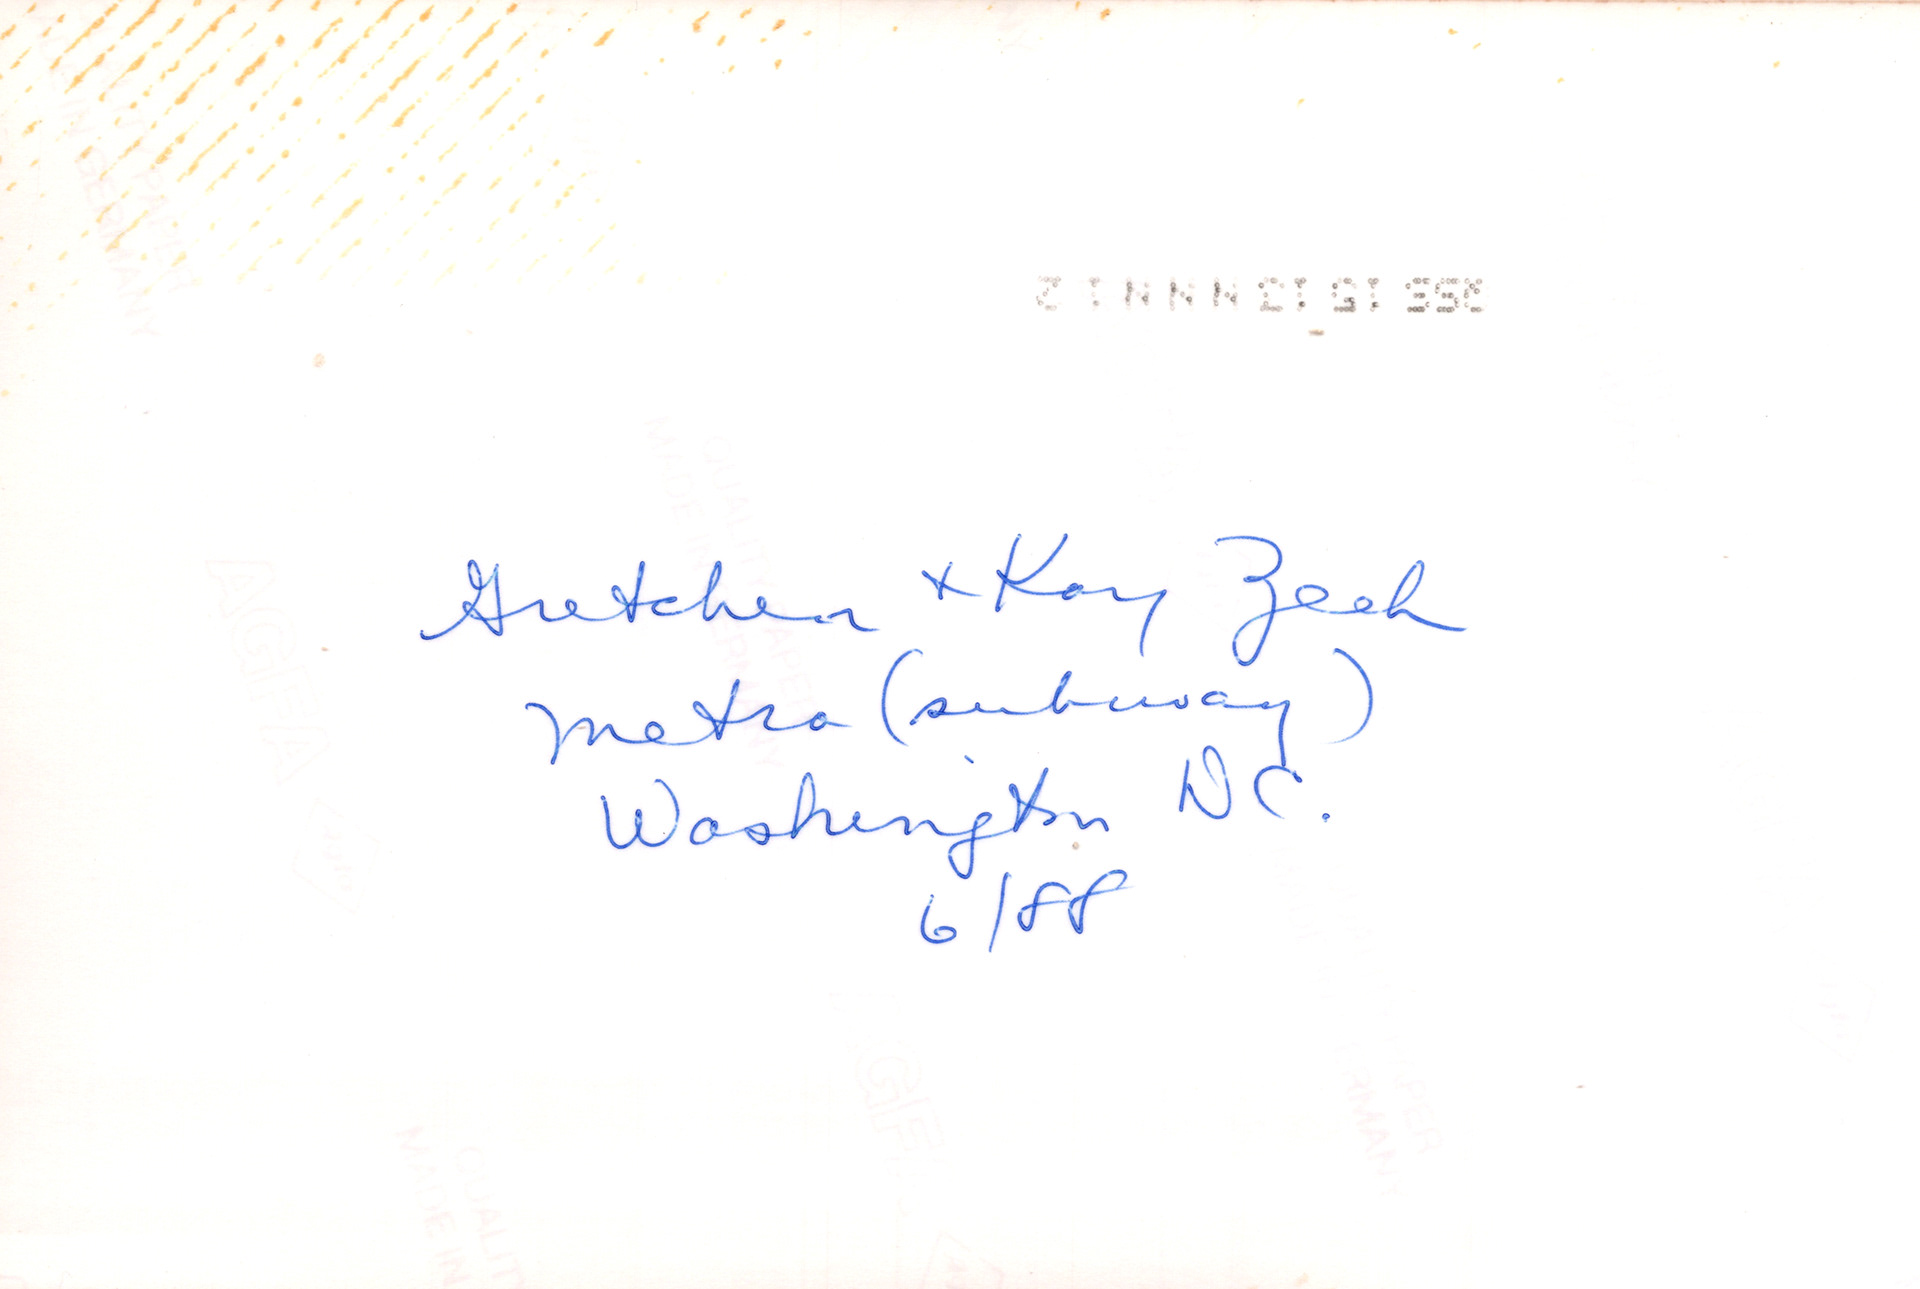 Gretchen + Kay Zeeh
Metro (subway)
Washington DC.
6/88
AGFA
QUALITY PAPER
MADE IN GERMANY